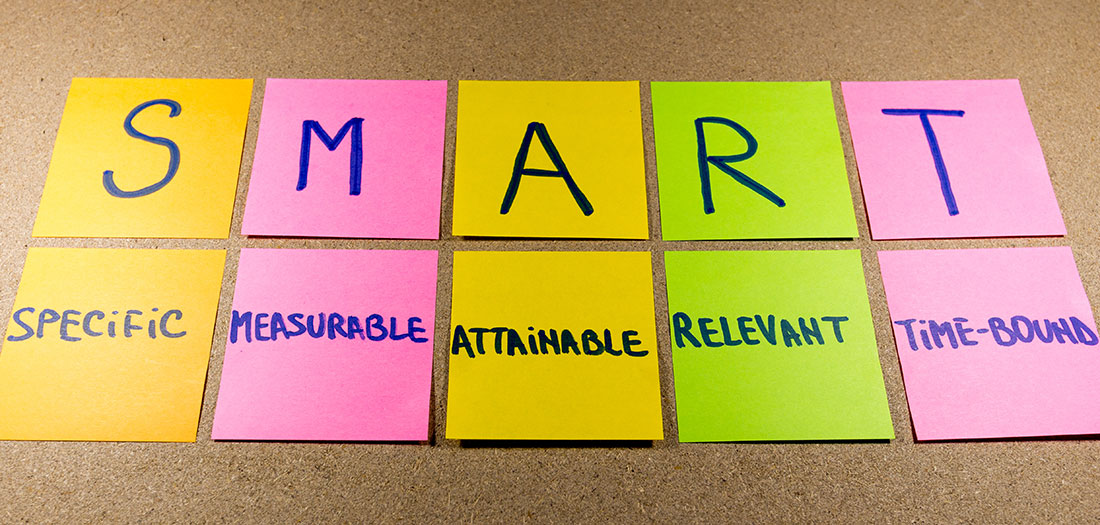 S M A R T
SPECiFiC MEASURABLE ATTAiNABLE RELEVANT TiME-BOUND